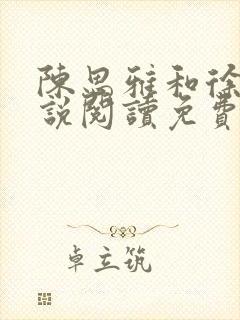 陳思雅和徐
說閱讀免費
卓立筑